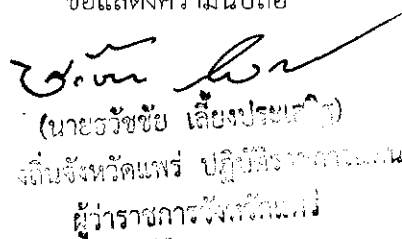 ขอแสดงความนับถือ
(นายธวัชชัย เลี้ยงประเสริฐ)
งถิ่นจังหวัดแพร่ ปฏิบัติราชการแทน
ผู้ว่าราชการจังหวัดแพร่